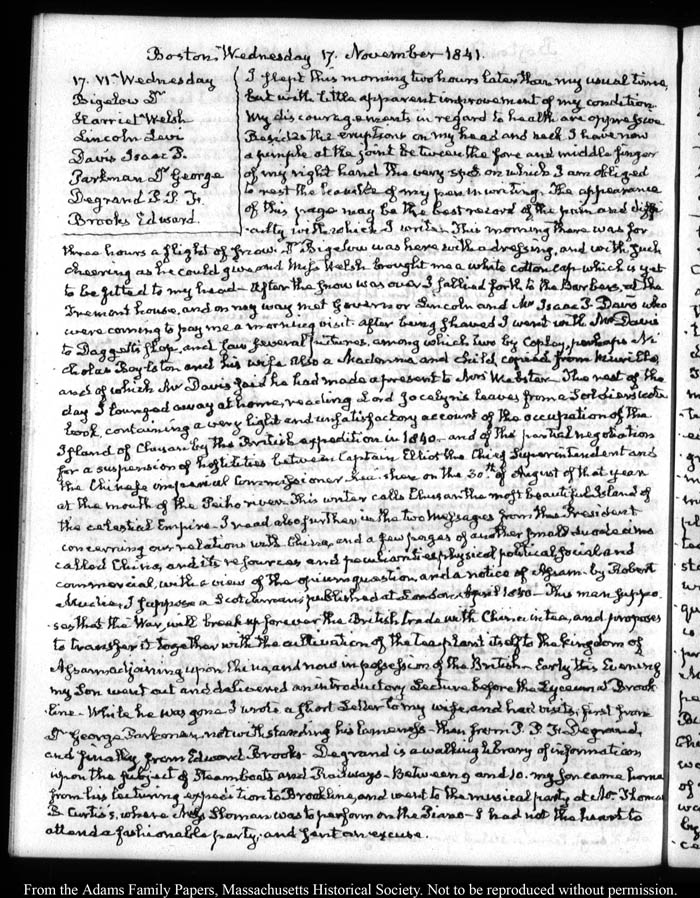 Boston, Wednesday 17. November 1841.
17. VI. Wednesday
Bigelow Dr
Harriet Welsh
Lincoln Levi
Davis Isaac P.
Parkman Dr George
Degrand P. P. F.
Brooks Edward.
I slept this morning two hours later than my usual time,
but with little apparent improvement of my condition.
My discouragements in regard to health are oppressive
Besides the eruptions on my head and neck I have now
a pimple at the joint between the fore and middle finger
of my right hand the very spot on which I am obliged
to rest the of my pen in writing. The appearance
of this page may be the best record of the pain and diffi-
culty with which I write. This morning there was for
three hours a flight of snow. Dr Bigelow was here with a dressing, and with such
cheering as he could give and Miss Welsh brought me a white cotton cap which is yet
to be fitted to my head. After the snow was over I sallied forth to the Barbers, at the
Tremont house, and on my way met Governor Lincoln and Mr Isaac P. Davis who
were coming to pay me a morning visit. After being shaved I went with Mr Davis
to Daggett's shop, and saw several pictures, among which two by Copley, perhaps Ni-
cholas Boylston and his wife. Also a Madonna and child, copied from Murillo,
and of which Mr Davis said he had made a present to Mrs Webster. The rest of the
day I lounged away at home, reading Lord Jocelyn's leaves from a Soldier's note
book, containing a very light and unsatisfactory account of the occupation of the
Island of Chusan by the British expedition in 1840. and of the partial negotiations
for a suspension of hostilities between Captain Elliot the Chief Superintendent and
the Chinese imperial Commissioner Kee-shen on the 30th of August of that year
at the mouth of the Peiho river. This writer calls Chusan the most beautiful Island of
the celestial Empire. I read also further in the two Messages from the President
concerning our relations with China, and a few pages of another small duodecimo
called China, and its resources and peculiarities physical political social and
commercial, with a view of the opium question, and a notice of Assam. by Robert
Mudie, I suppose a Scotchman, published at London April 1840. This man suppo-
ses, that the War, will break up forever the British trade with China in tea, and proposes
to transfer it together with the cultivation of the tea plant itself to the kingdom of
Assam adjoining upon China, and now in possession of the British. Early this Evening
my Son went out and delivered an introductory Lecture before the Lyceum at Brook-
line. While he was gone I wrote a short Letter to my wife, and had visits, first from
Dr George Parkman, notwithstanding his lameness. then from P. P. F. Degrand,
and finally from Edward Brooks. Degrand is a walking library of information
upon the subject of Steamboats and Railways. Between 9 and 10. my son came home
from his lecturing expedition to Brookline, and went to the musical party at Mr. Thomas
B. Curtis's, where Miss Sloman was to perform on the Piano. I had not the heart to
attend a fashionable party. and sent an excuse.
From the Adams Family Papers, Massachusetts Historical Society. Not to be reproduced without permission.